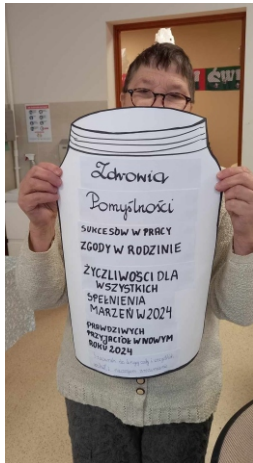 ŚWI
Zdrowia
Pomyślności
SUKCESÓW W PRACY
ZGODY W RODZINIE
ŻYCZLIWOŚCI DLA
WSZYSTKICH
SPEŁNIENIA
MARZEŃ W 2024
PRAWDZIWYCH
PRZYJACIÓŁ W NOWYM
ROKU 2024